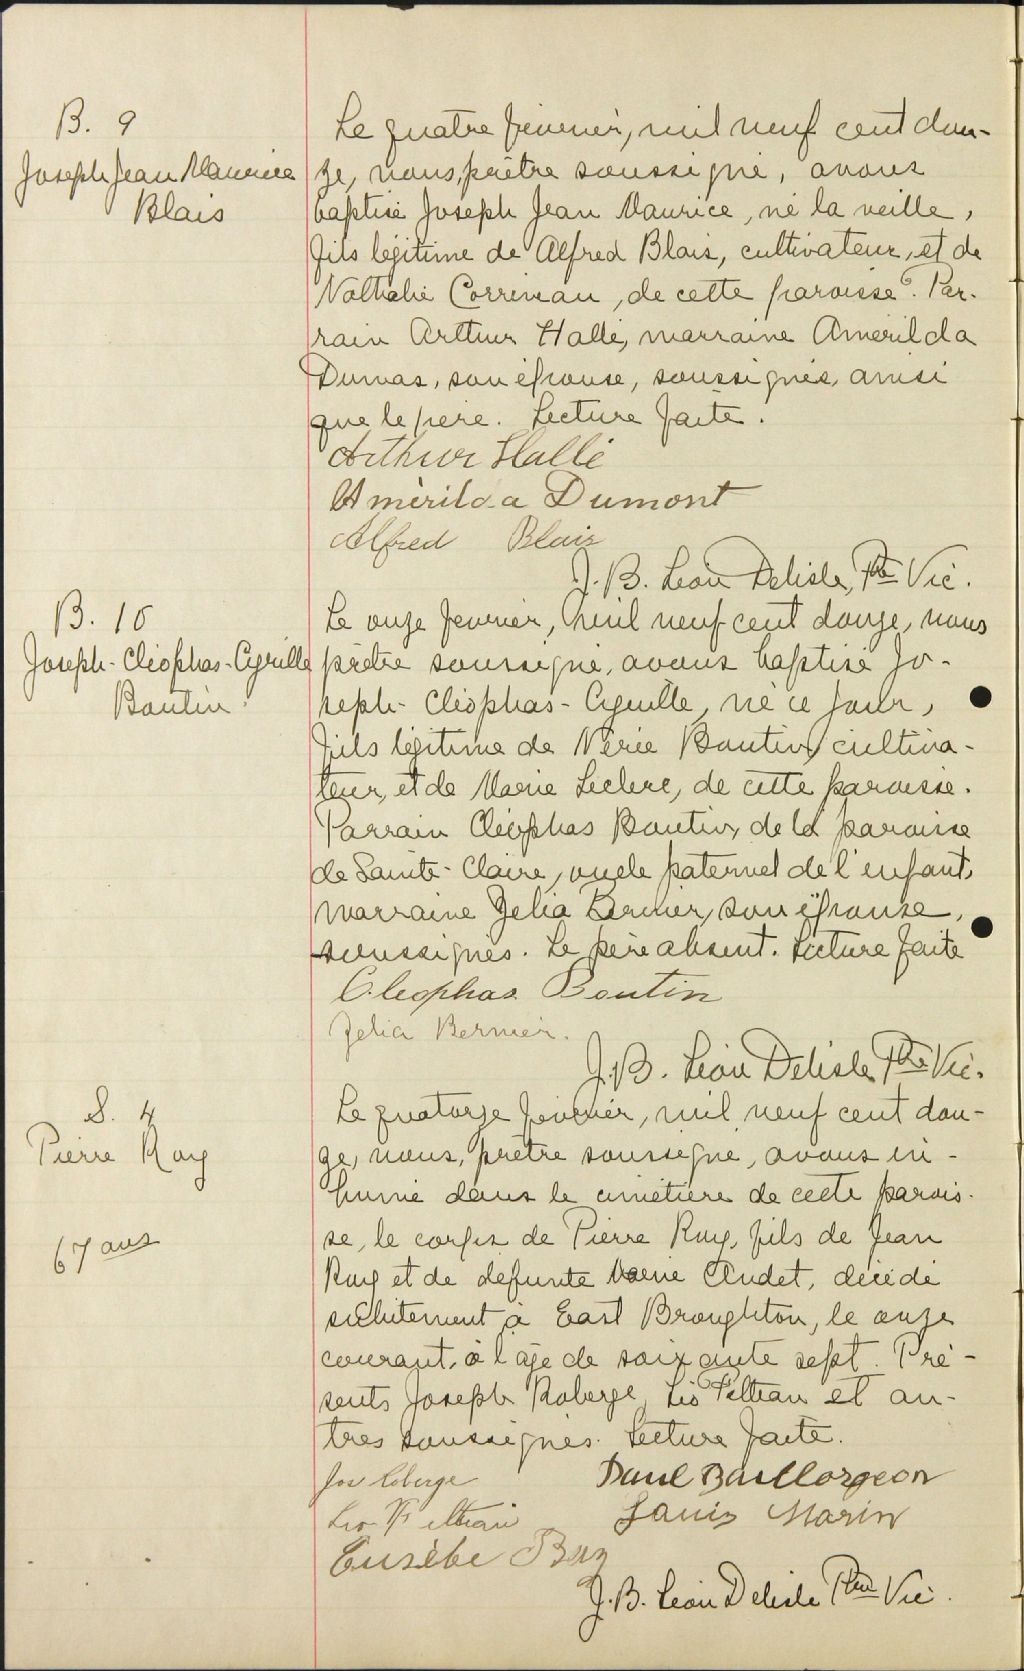 B. 9
Joseph Jean Maurice
Blais
Le quatre février, mil neuf cent dou-
ze, nous, prêtre soussigné, avons
baptisé Joseph Jean Maurice, né la veille,
fils légitime de Alfred Blais, cultivateur, et de
Nathalie Corriveau, de cette paroisse. Par-
rain Arthur Hallé, marraine Amérilda
Dumas, son épouse, soussignés, ainsi
que le père. Lecture faite.
Arthur Hallé
Amérilda Dumont
Alfred Blais
J. B. Léon Delisle, Ptre Vic.
B. 10
Joseph-Cléophas-Cyrille
Boutin
Le onze février, mil neuf cent douze, nous
prêtre soussigné, avons baptisé Jo-
seph-Cléophas-Cyrille, né ce jour,
fils légitime de Boutin, cultiva-
teur, et de Marie Leclerc, de cette paroisse.
Parrain Cléophas Boutin, de la paroisse
de Sainte-Claire, oncle paternel de l'enfant,
marraine Zelia Bernier, son épouse,
soussignés. Le père absent. Lecture faite
Cleophas Boutin
Zelia Bernier.
J. B. Léon Delisle Ptre Vic.
S. 4
Pierre Roy
67 ans
Le quatorze février, mil neuf cent dou-
ze, nous, prêtre soussigné, avons in-
humé dans le cimetière de cette parois-
se, le corps de Pierre Roy, fils de Jean
Roy et de défunte Marie Audet, décédé
subitement à East Broughton, le onze
courant, à l'âge de soixante sept. Pré-
sents Joseph Roberge, Léo Veltrau et au-
tres soussignés. Lecture faite.
Jos Roberge Paul Baillorgeon
Leo Louis Marin
Eusèbe
J. B. Léon Delisle Ptre Vic.